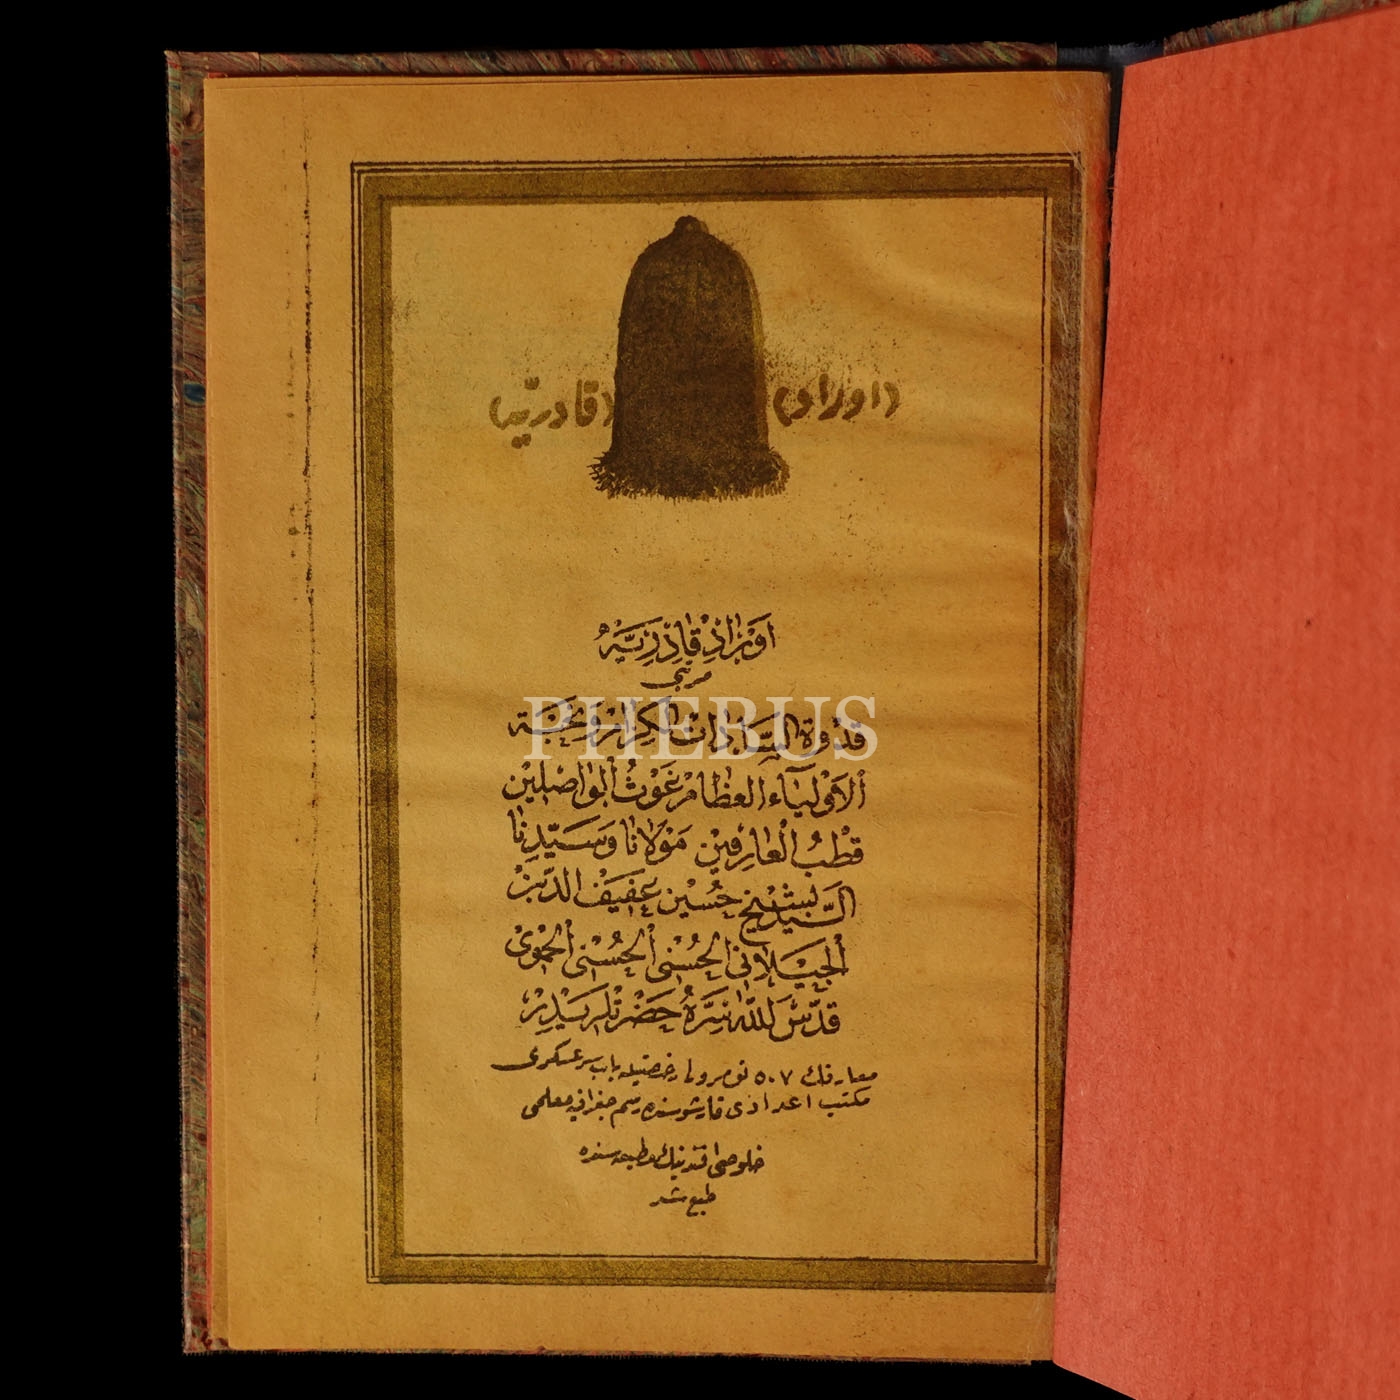 (اوراد) (قادريّه)
اَوْرَادِ قَادِرِيَّهْ
مرتبى
قُدْوَةُ السَّادَاتِ الْكِرَامِ وَنُخْبَةُ
اَلْاَوْلِيَآءِ الْعِظَامْ غَوْثُ الْوَاصِلِيْن
قُطْبُ الْعَارِفِيْن مَوْلَانَا وَسَيِّدِنَا
السَّيِّد الشَّيْخ حُسَيْن عَفِيْفِ الدِّيْن
اَلْجَيْلَانِى الْحَسَنِى الْحُسَيْنِى الْحَمَوِىْ
قَدَّسَ اللّٰهُ سِرَّهُ حَضْرَتْلَرِيْدِرْ
معارفك ٥٠٧ نومرولى رخصتيله باب سرعسكرى
مكتب اعدادى قارشوسنده رسم جغرافيه معلمى
خلوصى افندينك مطبعه سنده
طبع
PHEBUS